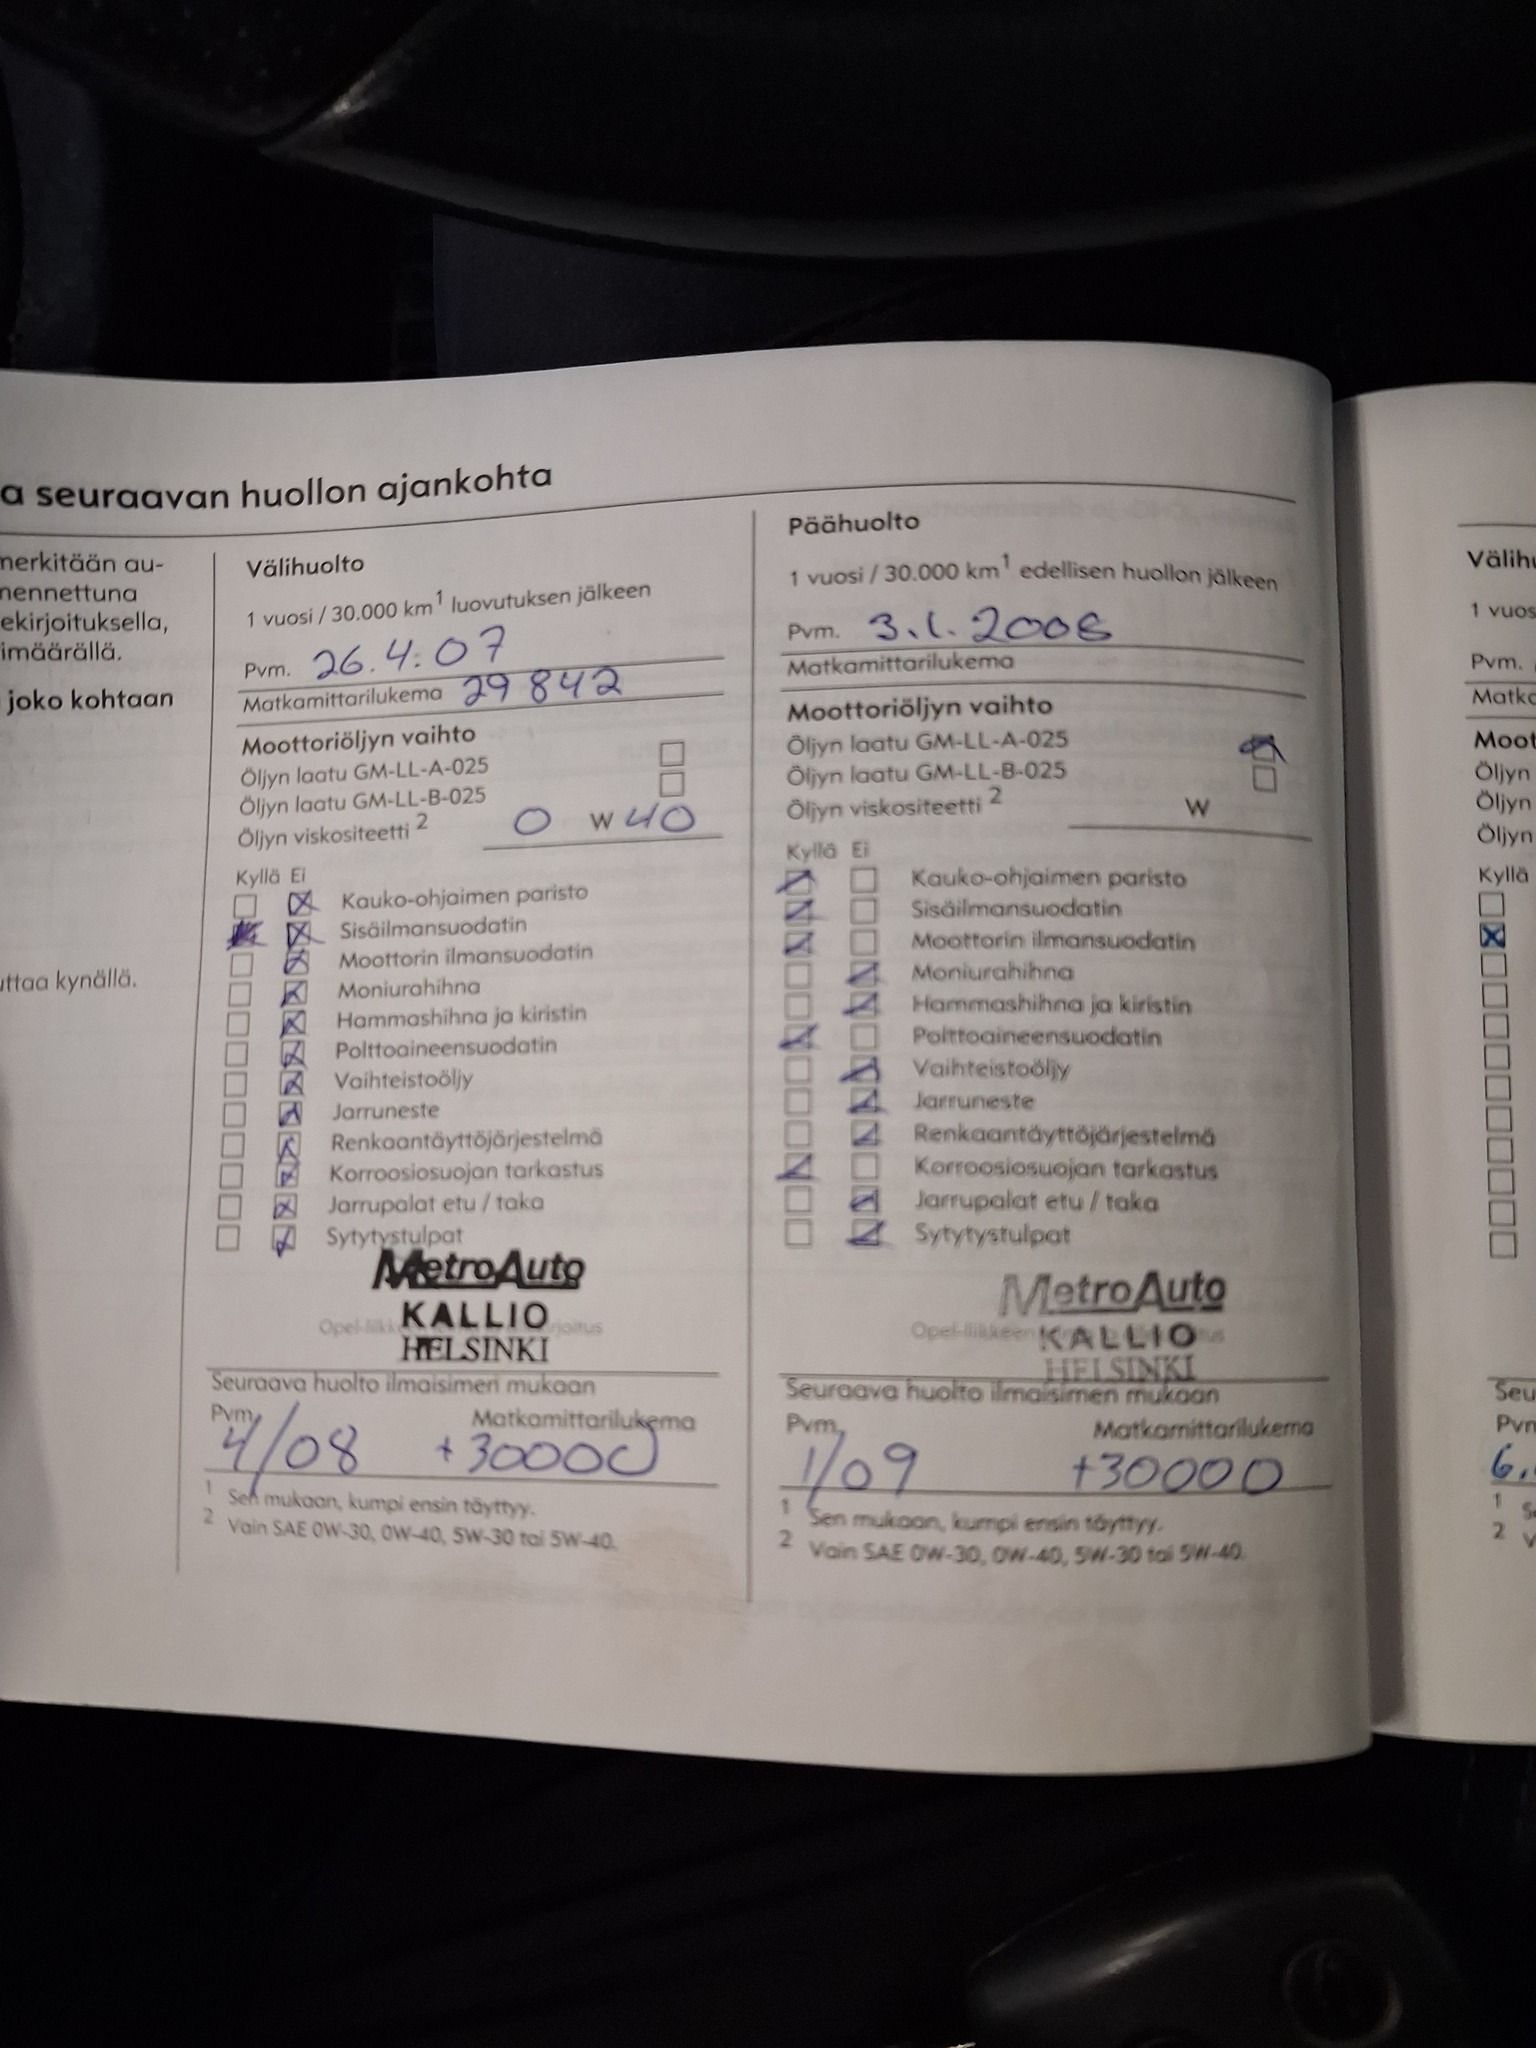 a seuraavan huollon ajankohta
merkitään au-
mennettuna
ekirjoituksella,
imäärällä.
joko kohtaan
uttaa kynällä.
Välihuolto
1 vuosi / 30.000 km1 luovutuksen jälkeen
Pvm. 26.4.07
Matkamittarilukema 29842
Moottoriöljyn vaihto
Öljyn laatu GM-LL-A-025
Öljyn laatu GM-LL-B-025
Öljyn viskositeetti 2 0 W 40
Kyllä Ei
Kauko-ohjaimen paristo
Sisäilmansuodatin
Moottorin ilmansuodatin
Moniurahihna
Hammashihna ja kiristin
Polttoaineensuodatin
Vaihteistoöljy
Jarruneste
Renkaantäyttöjärjestelmä
Korroosiosuojan tarkastus
Jarrupalat etu / taka
Sytytystulpat
MetroAuto
KALLIO
HELSINKI
Seuraava huolto ilmaisimen mukaan
Pvm. Matkamittarilukema
4/08 +30000
1 Sen mukaan, kumpi ensin täyttyy.
2 Vain SAE 0W-30, 0W-40, 5W-30 tai 5W-40.
Päähuolto
1 vuosi / 30.000 km1 edellisen huollon jälkeen
Pvm. 3.1.2008
Matkamittarilukema
Moottoriöljyn vaihto
Öljyn laatu GM-LL-A-025
Öljyn laatu GM-LL-B-025
Öljyn viskositeetti 2 W
Kyllä Ei
Kauko-ohjaimen paristo
Sisäilmansuodatin
Moottorin ilmansuodatin
Moniurahihna
Hammashihna ja kiristin
Polttoaineensuodatin
Vaihteistoöljy
Jarruneste
Renkaantäyttöjärjestelmä
Korroosiosuojan tarkastus
Jarrupalat etu / taka
Sytytystulpat
MetroAuto
Opel-liikkeen KALLIO
HELSINKI
Seuraava huolto ilmaisimen mukaan
Pvm. Matkamittarilukema
1/09 +30000
1 Sen mukaan, kumpi ensin täyttyy.
2 Vain SAE 0W-30, 0W-40, 5W-30 tai 5W-40.
Välihu
1 vuos
Pvm.
Matka
Moot
Öljyn
Öljyn
Öljyn
Kyllä
Seu
Pvm
6.
1 S
2 V